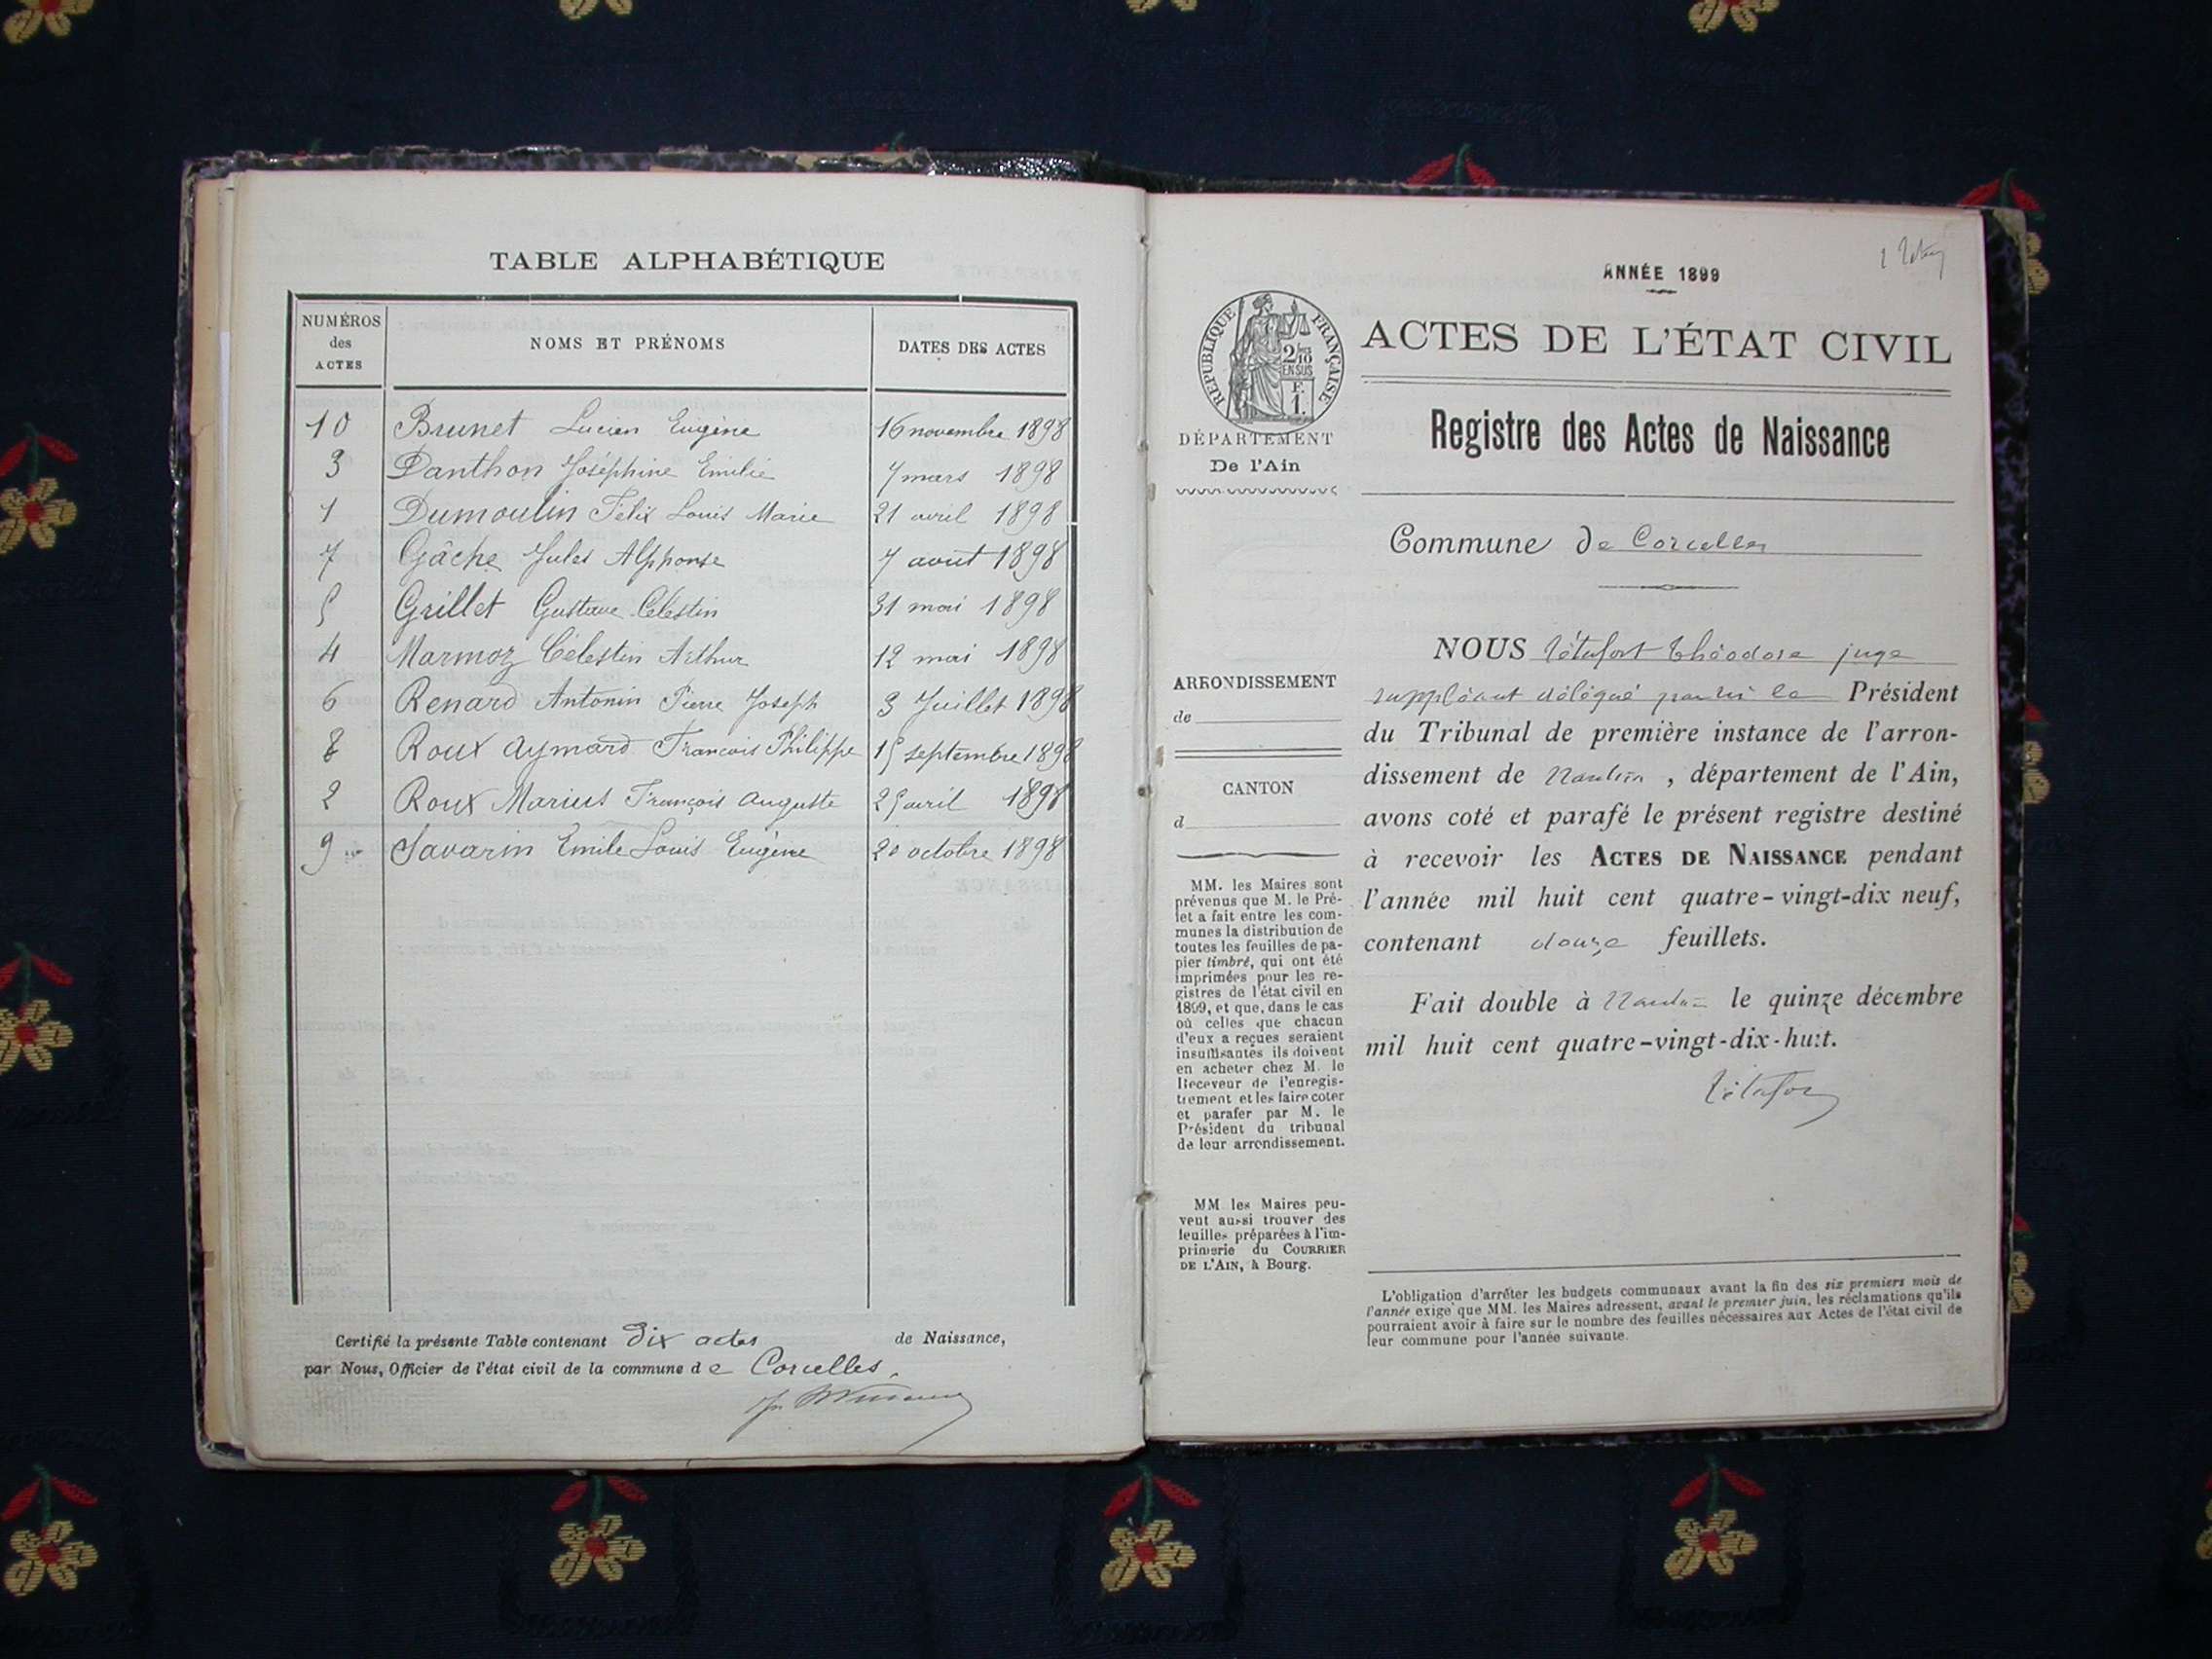 TABLE ALPHABÉTIQUE
NUMÉROS des ACTES
NOMS ET PRÉNOMS
DATES DES ACTES
10 Brunet Lucien Eugène 16 novembre 1898
3 Danthon Joséphine Emilie 7 mars 1898
1 Dumoulin Félix Louis Marie 21 avril 1898
7 Gâche Jules Alphonse 7 août 1898
5 Grillet Gustave Célestin 31 mai 1898
4 Marmoz Célestin Arthur 12 mai 1898
6 Renard Antonin Pierre Joseph 3 Juillet 1898
8 Roux Aymard Francois Philippe 15 septembre 1898
2 Roux Marius François Auguste 25 avril 1898
9 Savarin Emile Louis Eugène 20 octobre 1898
Certifié la présente Table contenant Dix actes de Naissance,
par Nous, Officier de l'état civil de la commune de Corcelles.
ANNÉE 1899
RÉPUBLIQUE FRANÇAISE
2/10
EN SUS
F.
1.
ACTES DE L'ÉTAT CIVIL
DÉPARTEMENT
De l'Ain
Registre des Actes de Naissance
Commune de Corcelles
ARRONDISSEMENT
de
CANTON
d
MM. les Maires sont
prévenus que M. le Pré-
fet a fait entre les com-
munes la distribution de
toutes les feuilles de pa-
pier timbré, qui ont été
imprimées pour les re-
gistres de l'état civil en
1899, et que, dans le cas
où celles que chacun
d'eux a reçues seraient
insuffisantes ils doivent
en acheter chez M. le
Receveur de l'enregis-
trement et les faire coter
et parafer par M. le
Président du tribunal
de leur arrondissement.
MM les Maires peu-
vent aussi trouver des
feuilles préparées à l'im-
primerie du COURRIER
DE L'AIN, à Bourg.
NOUS Théodore juge
suppléant délégué le Président
du Tribunal de première instance de l'arron-
dissement de Nantua, département de l'Ain,
avons coté et parafé le présent registre destiné
à recevoir les ACTES DE NAISSANCE pendant
l'année mil huit cent quatre-vingt-dix neuf,
contenant douze feuillets.
Fait double à Nantua le quinze décembre
mil huit cent quatre-vingt-dix-huit.
L'obligation d'arrêter les budgets communaux avant la fin des six premiers mois de
l'année exige que MM. les Maires adressent, avant le premier juin, les réclamations qu'ils
pourraient avoir à faire sur le nombre des feuilles nécessaires aux Actes de l'état civil de
leur commune pour l'année suivante.